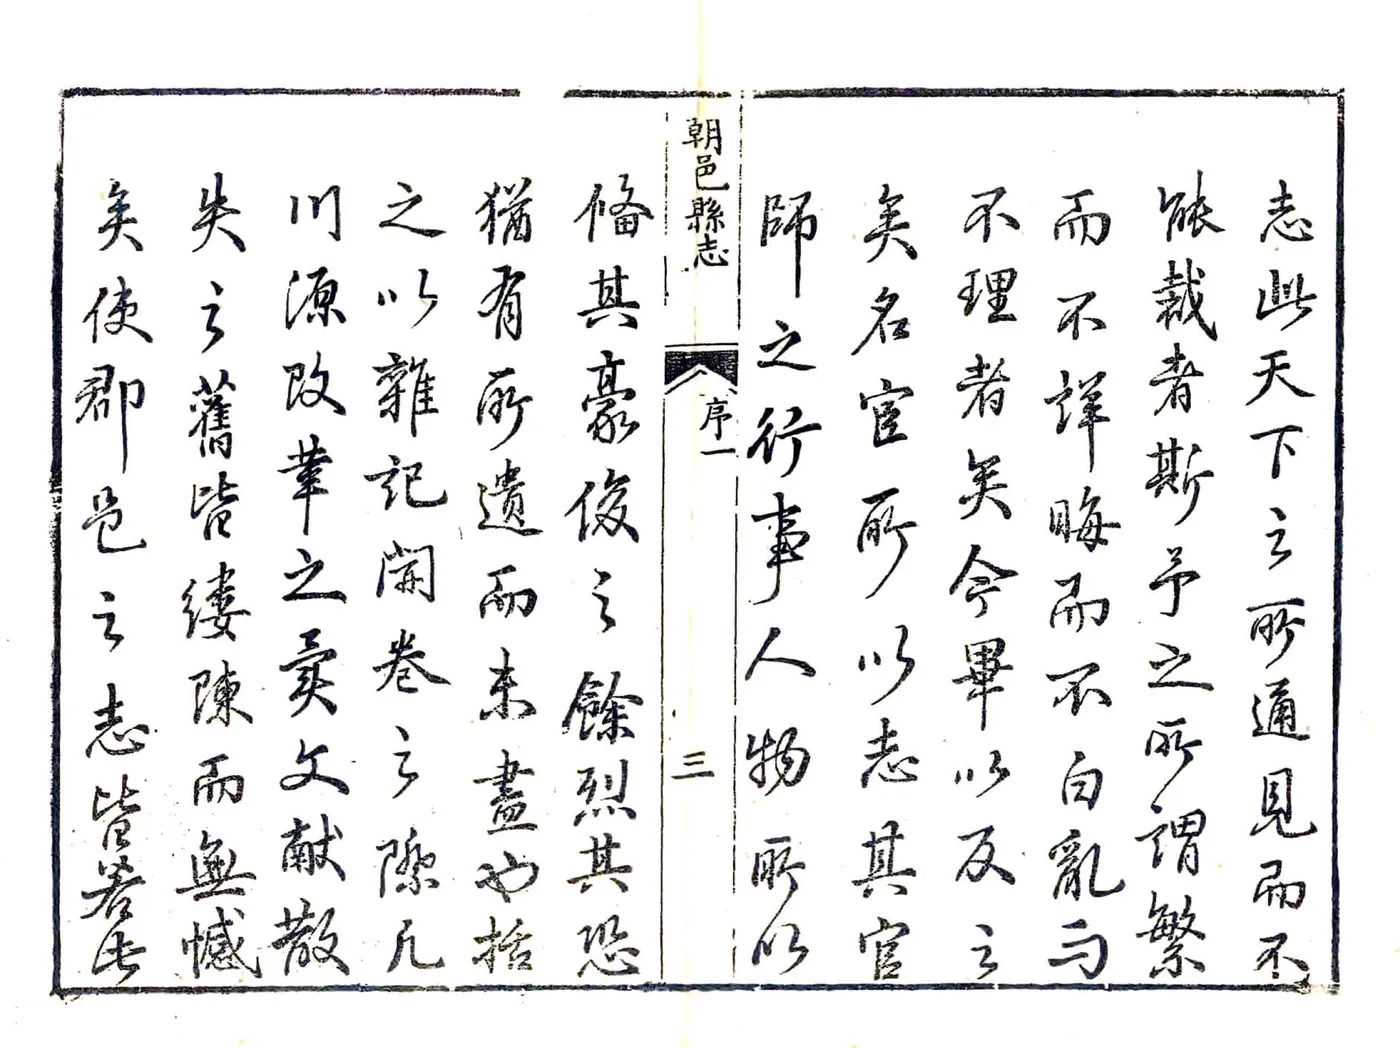 志此天下之所通見而不
能裁者斯予之所謂繁
而不詳晦而不白亂而
不理者矣今畢以反之
矣名宦所以志其官
師之行事人物所以
朝邑縣志
序一
三
備其豪俊之餘烈其恐
猶有所遺而未盡也括
之以雜記開卷之際凡
川源改革之異文獻散
失之舊皆縷陳而無憾
矣使郡邑之志皆若此